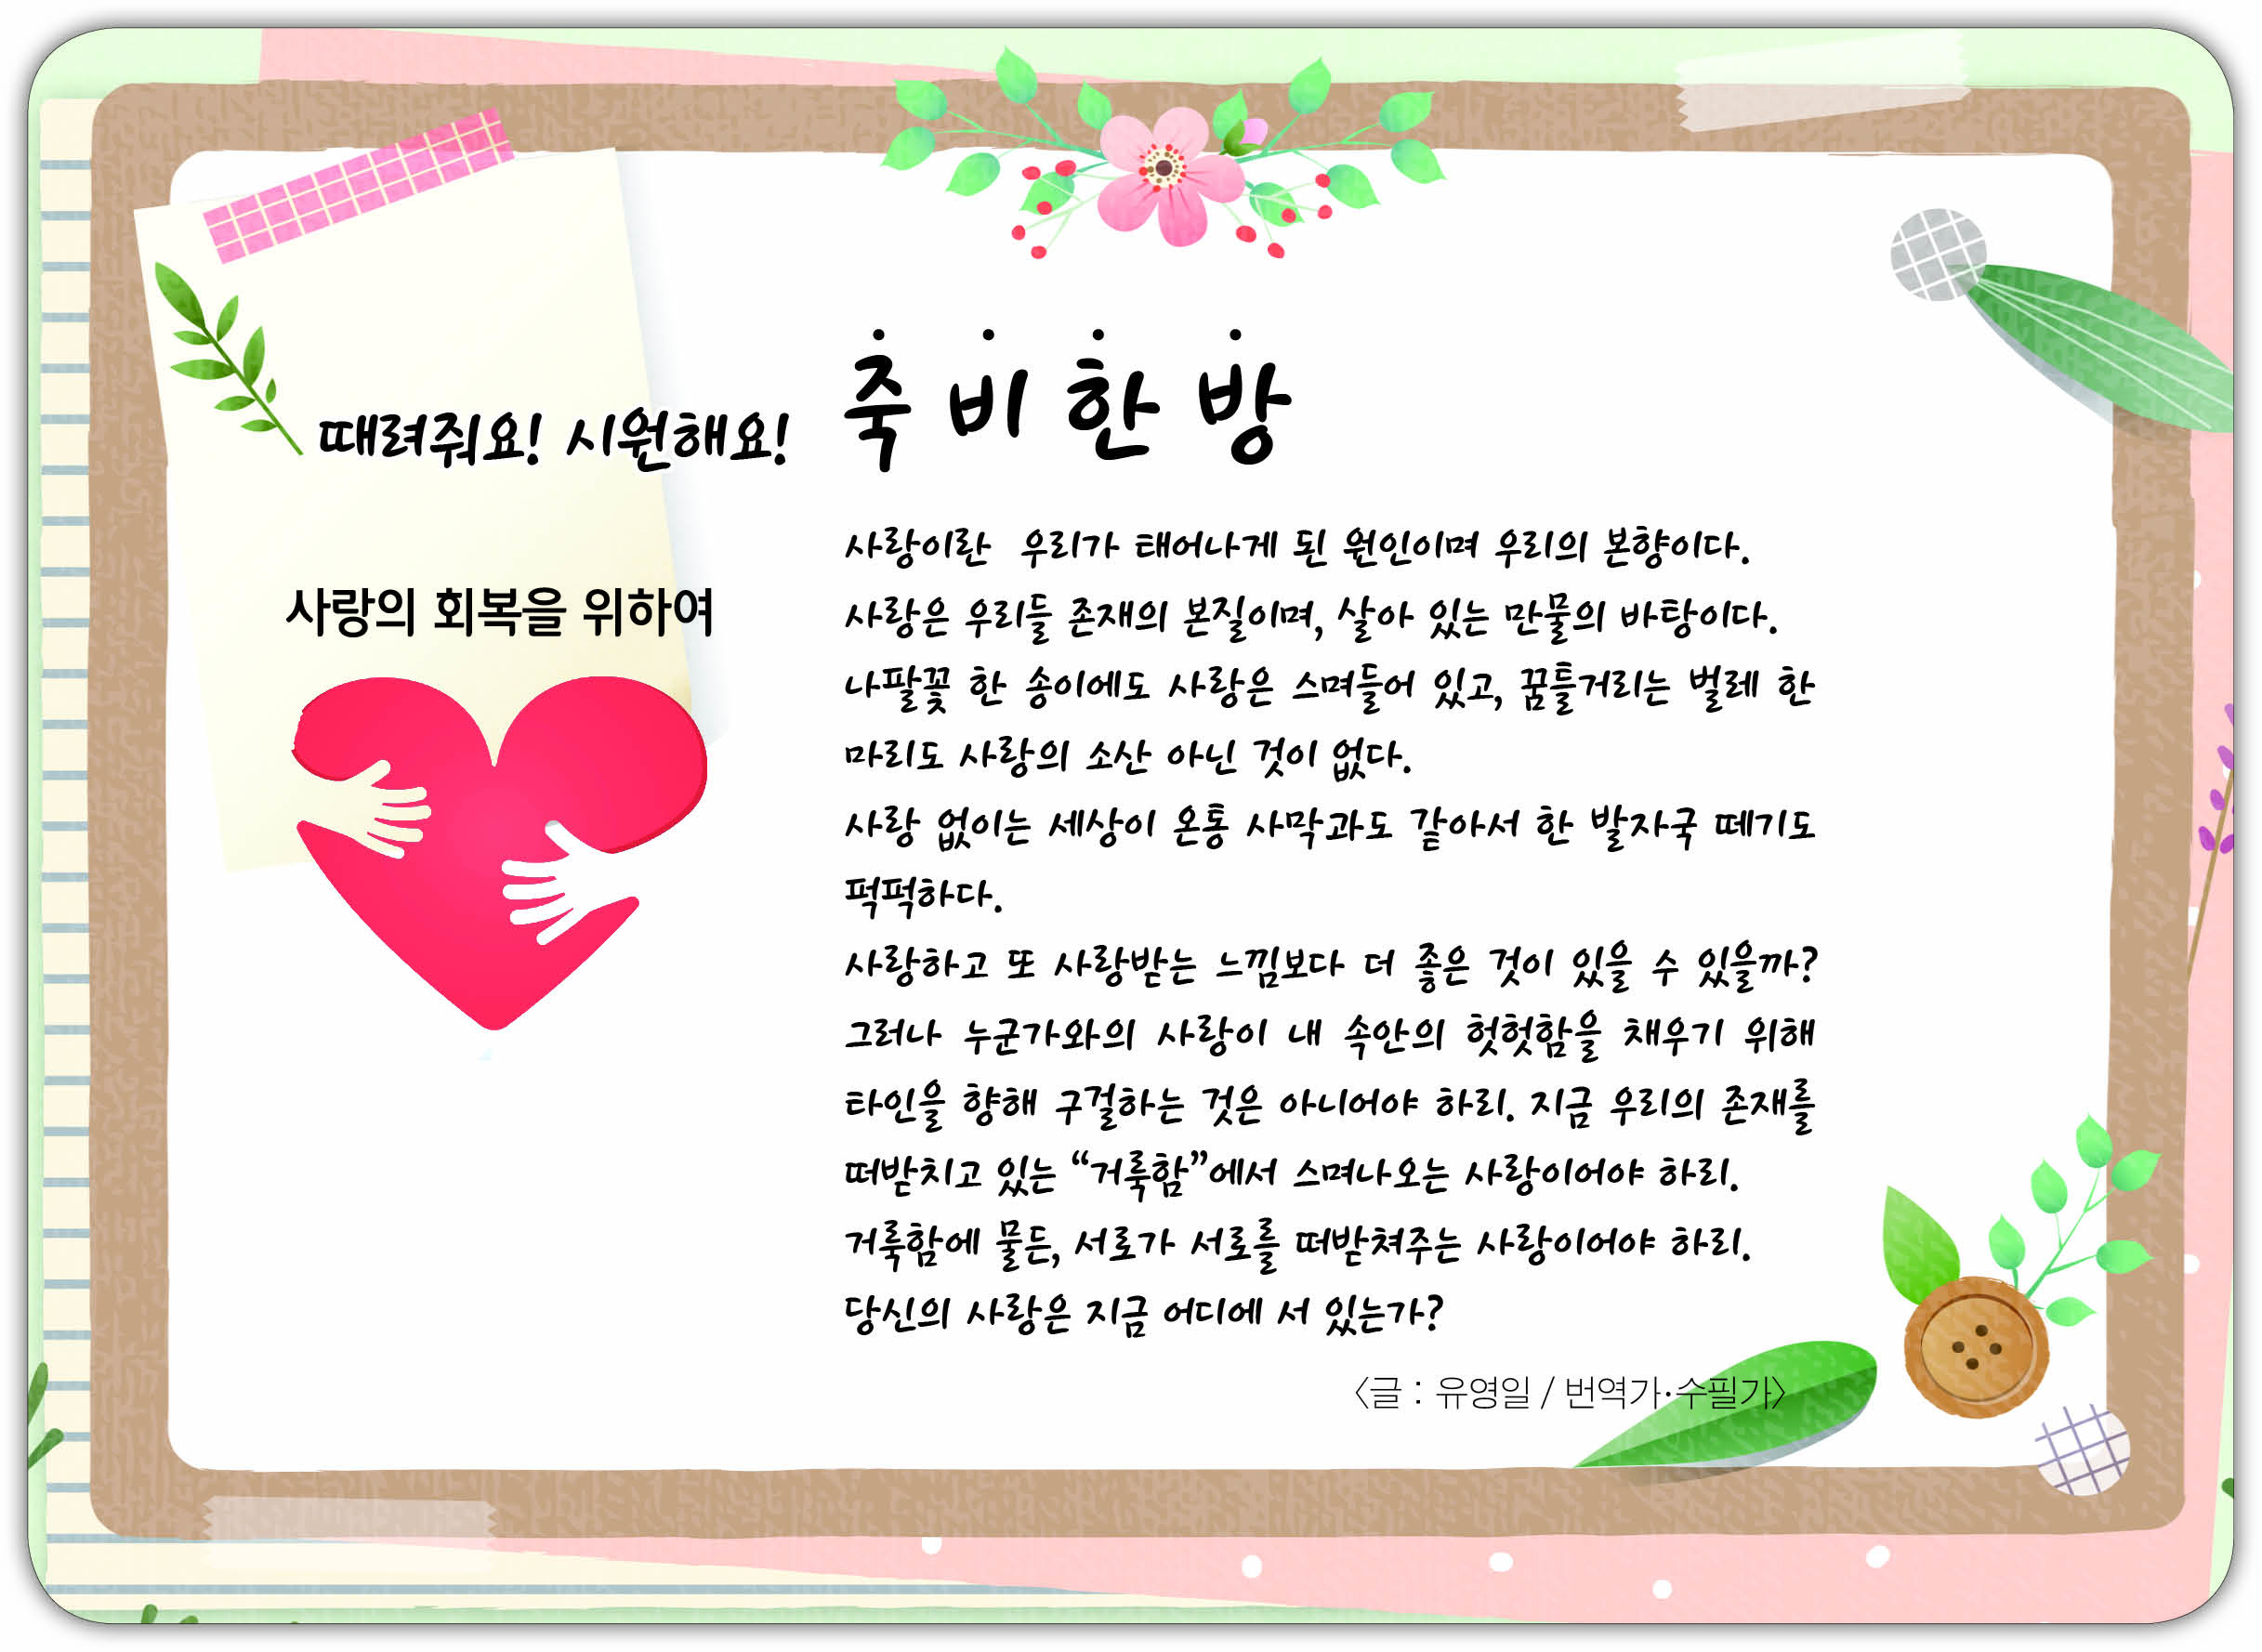 때려줘요! 시원해요!
죽 비 한 방
사랑의 회복을 위하여
사랑이란 우리가 태어나게 된 원인이며 우리의 본향이다.
사랑은 우리들 존재의 본질이며, 살아 있는 만물의 바탕이다.
나팔꽃 한 송이에도 사랑은 스며들어 있고, 꿈틀거리는 벌레 한
마리도 사랑의 소산 아닌 것이 없다.
사랑 없이는 세상이 온통 사막과도 같아서 한 발자국 떼기도
퍽퍽하다.
사랑하고 또 사랑받는 느낌보다 더 좋은 것이 있을 수 있을까?
그러나 누군가와의 사랑이 내 속안의 헛헛함을 채우기 위해
타인을 향해 구걸하는 것은 아니어야 하리. 지금 우리의 존재를
떠받치고 있는 “거룩함”에서 스며나오는 사랑이어야 하리.
거룩함에 물든, 서로가 서로를 떠받쳐주는 사랑이어야 하리.
당신의 사랑은 지금 어디에 서 있는가?
〈글 : 유영일 / 번역가·수필가〉